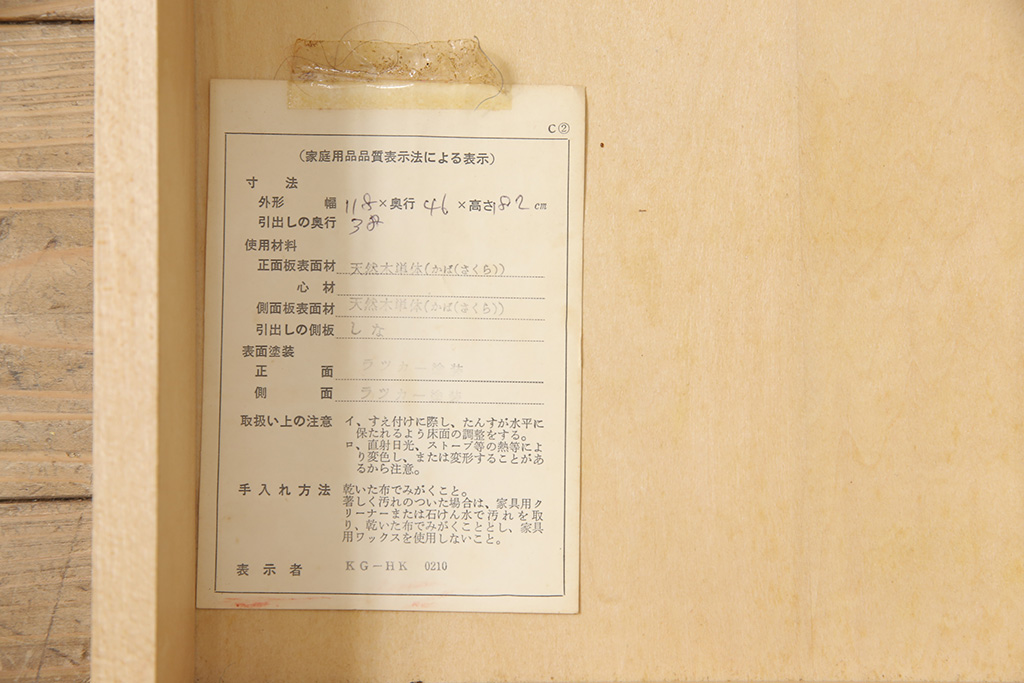 C②
（家庭用品品質表示法による表示）
寸法
外形 幅 118×奥行 46 ×高さ182 cm
引出しの奥行 38
使用材料
正面板表面材 天然木単体(かば(さくら))
心材
側面板表面材 天然木単体(かば(さくら))
引出しの側板 しな
表面塗装
正面 ラッカー塗装
側面 ラッカー塗装
取扱い上の注意 イ、すえ付けに際し、たんすが水平に
保たれるよう床面の調整をする。
ロ、直射日光、ストーブ等の熱等によ
り変色し、または変形することがあ
るから注意。
手入れ方法 乾いた布でみがくこと。
著しく汚れのついた場合は、家具用ク
リーナーまたは石けん水で汚れを取
り、乾いた布でみがくこととし、家具
用ワックスを使用しないこと。
表示者 KG－HK 0210